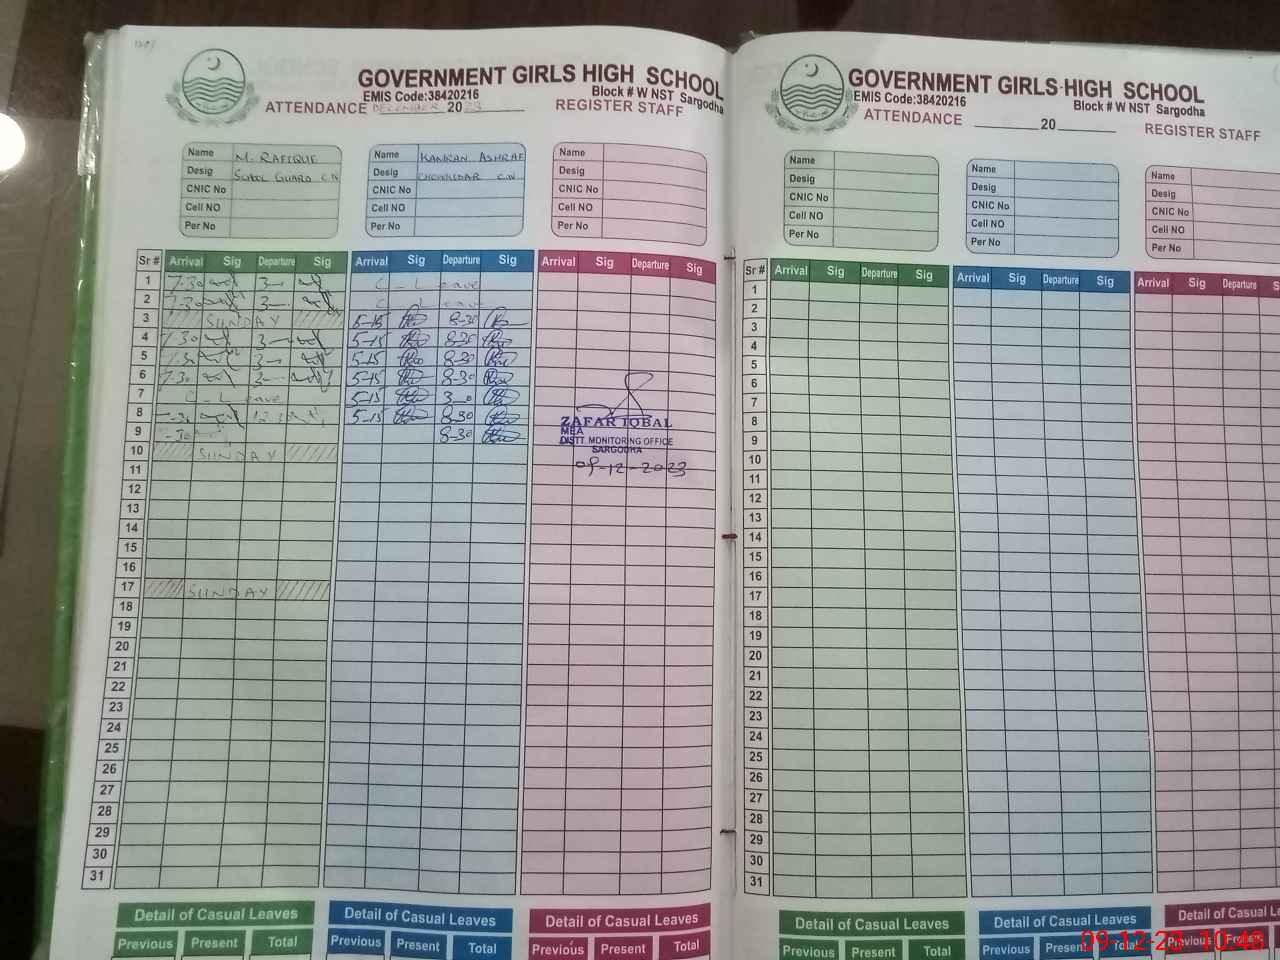 GOVERNMENT GIRLS HIGH SCHOOL
EMIS Code:38420216 Block # W NST Sargodha
ATTENDANCE DECEMBER 2023 REGISTER STAFF
Name M. RAFIQUE
Desig SCHOOL GUARD C.N
CNIC No
Cell NO
Per No
Name KAMRAN ASHRAF
Desig CHOWKIDAR C.N
CNIC No
Cell NO
Per No
Name
Desig
CNIC No
Cell NO
Per No
Sr # Arrival Sig Departure Sig Arrival Sig Departure Sig Arrival Sig Departure Sig
1 7.30 3 C - Leave
2 7.30 3 C - Leave
3 SUNDAY 5-15 8-30
4 7.30 3 5-15 8-30
5 7.30 3 5-15 8-30
6 7.30 3 5-15 8-30
7 C - Leave 5-15 3
8 12.30 5-15 8-30
9 8-30
10 SUNDAY
11
12
13
14
15
16
17 SUNDAY
18
19
20
21
22
23
24
25
26
27
28
29
30
31
ZAFAR IQBAL
MEA
DISTT. MONITORING OFFICE
SARGODHA
09-12-2023
Detail of Casual Leaves Detail of Casual Leaves Detail of Casual Leaves
Previous Present Total Previous Present Total Previous Present Total
GOVERNMENT GIRLS HIGH SCHOOL
EMIS Code:38420216 Block # W NST Sargodha
ATTENDANCE 20 REGISTER STAFF
Name
Desig
CNIC No
Cell NO
Per No
Name
Desig
CNIC No
Cell NO
Per No
Name
Desig
CNIC No
Cell NO
Per No
Sr # Arrival Sig Departure Sig Arrival Sig Departure Sig Arrival Sig Departure
1
2
3
4
5
6
7
8
9
10
11
12
13
14
15
16
17
18
19
20
21
22
23
24
25
26
27
28
29
30
31
Detail of Casual Leaves Detail of Casual Leaves Detail of Casual
Previous Present Total Previous Present Total Previous Present
09-12-23 10:48